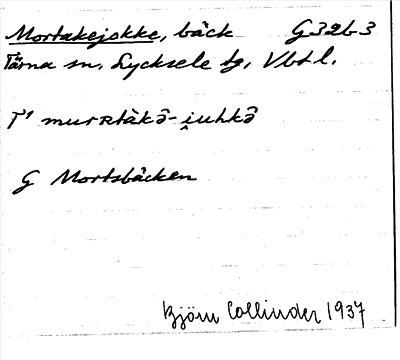 Mortakejokke, bäck G32b3
Tärna sn, Lycksele tg, Vbtl.
T' murRtàkə̂-i̭uhkə̂
G Mortsbäcken
Björn Collinder 1937